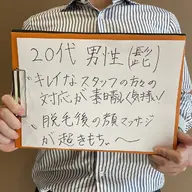 20代 男性(髭)
"キレイなスタッフの方との
対応が素晴しく気持い
脱毛後の顔マッサージ
が超きもち〜